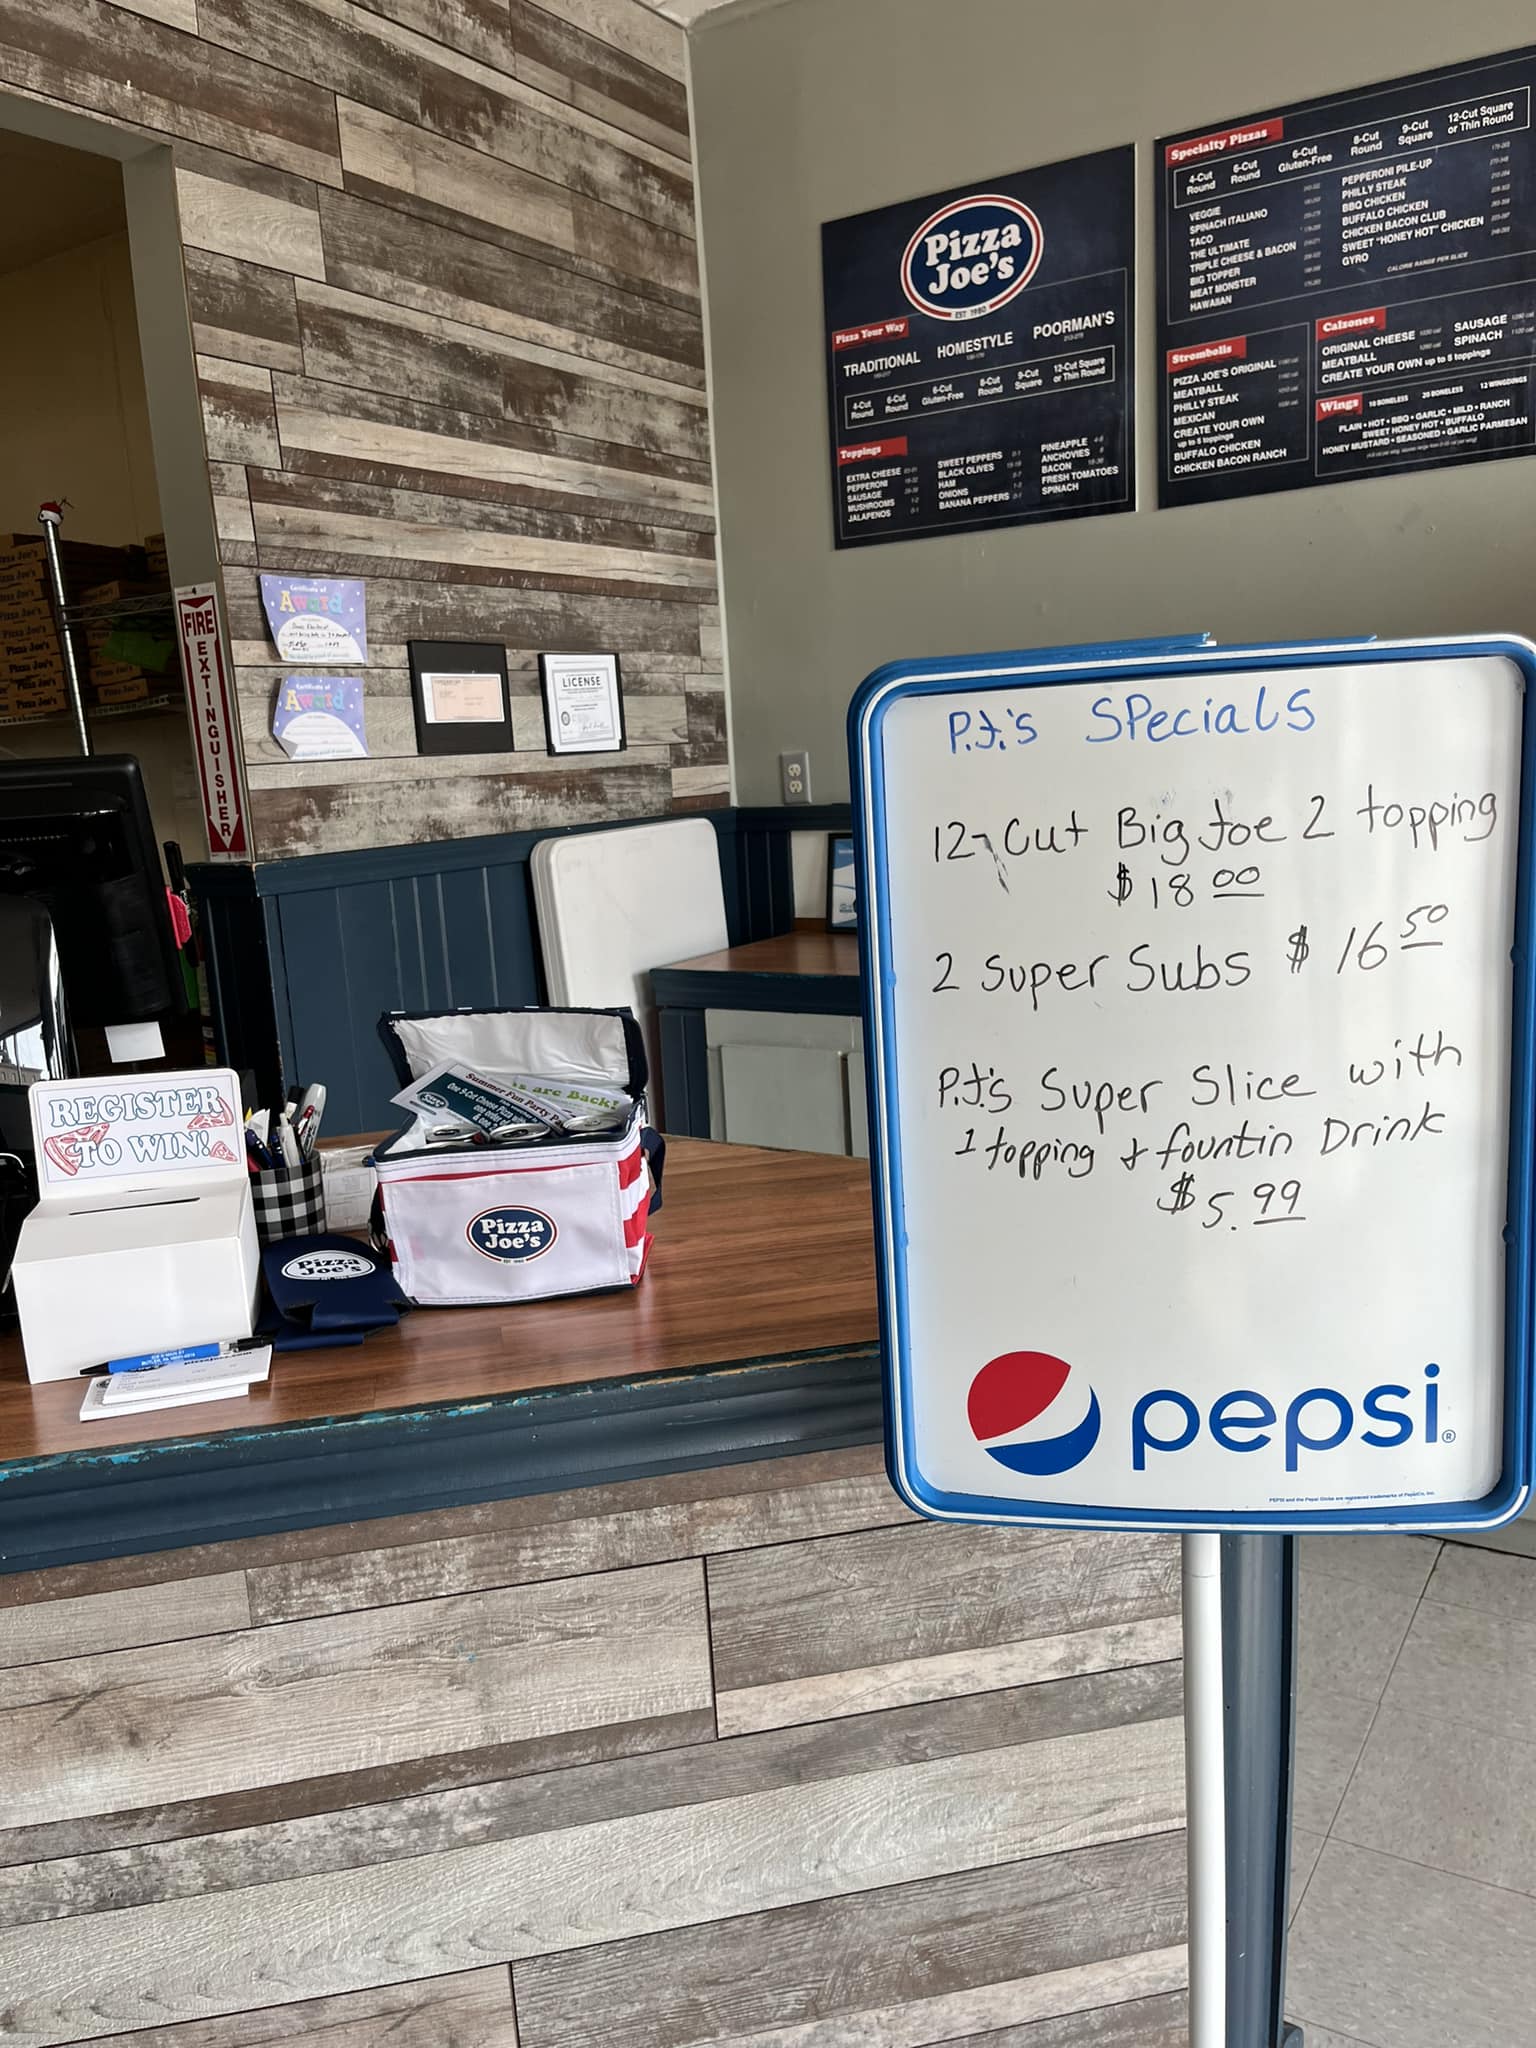 Pizza
Joe's
EST 1980
Pizza Your Way
TRADITIONAL HOMESTYLE POORMAN'S
4-Cut Round 6-Cut Round 6-Cut Gluten-Free 8-Cut Round 9-Cut Square 12-Cut Square or Thin Round
Toppings
EXTRA CHEESE
PEPPERONI
SAUSAGE
MUSHROOMS
JALAPENOS
SWEET PEPPERS
BLACK OLIVES
HAM
ONIONS
BANANA PEPPERS
PINEAPPLE
ANCHOVIES
BACON
FRESH TOMATOES
SPINACH
Specialty Pizzas
4-Cut Round 6-Cut Round 6-Cut Gluten-Free 8-Cut Round 9-Cut Square 12-Cut Square or Thin Round
VEGGIE
SPINACH ITALIANO
TACO
THE ULTIMATE
TRIPLE CHEESE & BACON
BIG TOPPER
MEAT MONSTER
HAWAIIAN
PEPPERONI PILE-UP
PHILLY STEAK
BBQ CHICKEN
BUFFALO CHICKEN
CHICKEN BACON CLUB
SWEET "HONEY HOT" CHICKEN
GYRO
CALORIE RANGE PER SLICE
Strombolis
PIZZA JOE'S ORIGINAL
MEATBALL
PHILLY STEAK
MEXICAN
CREATE YOUR OWN
up to 5 toppings
BUFFALO CHICKEN
CHICKEN BACON RANCH
Calzones
ORIGINAL CHEESE
MEATBALL
SAUSAGE
SPINACH
CREATE YOUR OWN up to 5 toppings
Wings 10 BONELESS 20 BONELESS 12 WINGDINGS
PLAIN • HOT • BBQ • GARLIC • MILD • RANCH
SWEET HONEY HOT • BUFFALO
HONEY MUSTARD • SEASONED • GARLIC PARMESAN
FIRE
EXTINGUISHER
Certificate of
Award
Certificate of
Award
LICENSE
Pizza Joe's
Pizza Joe's
P.J.'s Specials
12-Cut Big Joe 2 topping
$18 00
2 Super Subs $16 50
P.J.'s Super Slice with
1 topping & fountin Drink
$5.99
pepsi
REGISTER
TO WIN!
is are Back!
Summer Fun Party
Pizza
Joe's
Pizza
Joe's
pizzajoes.com